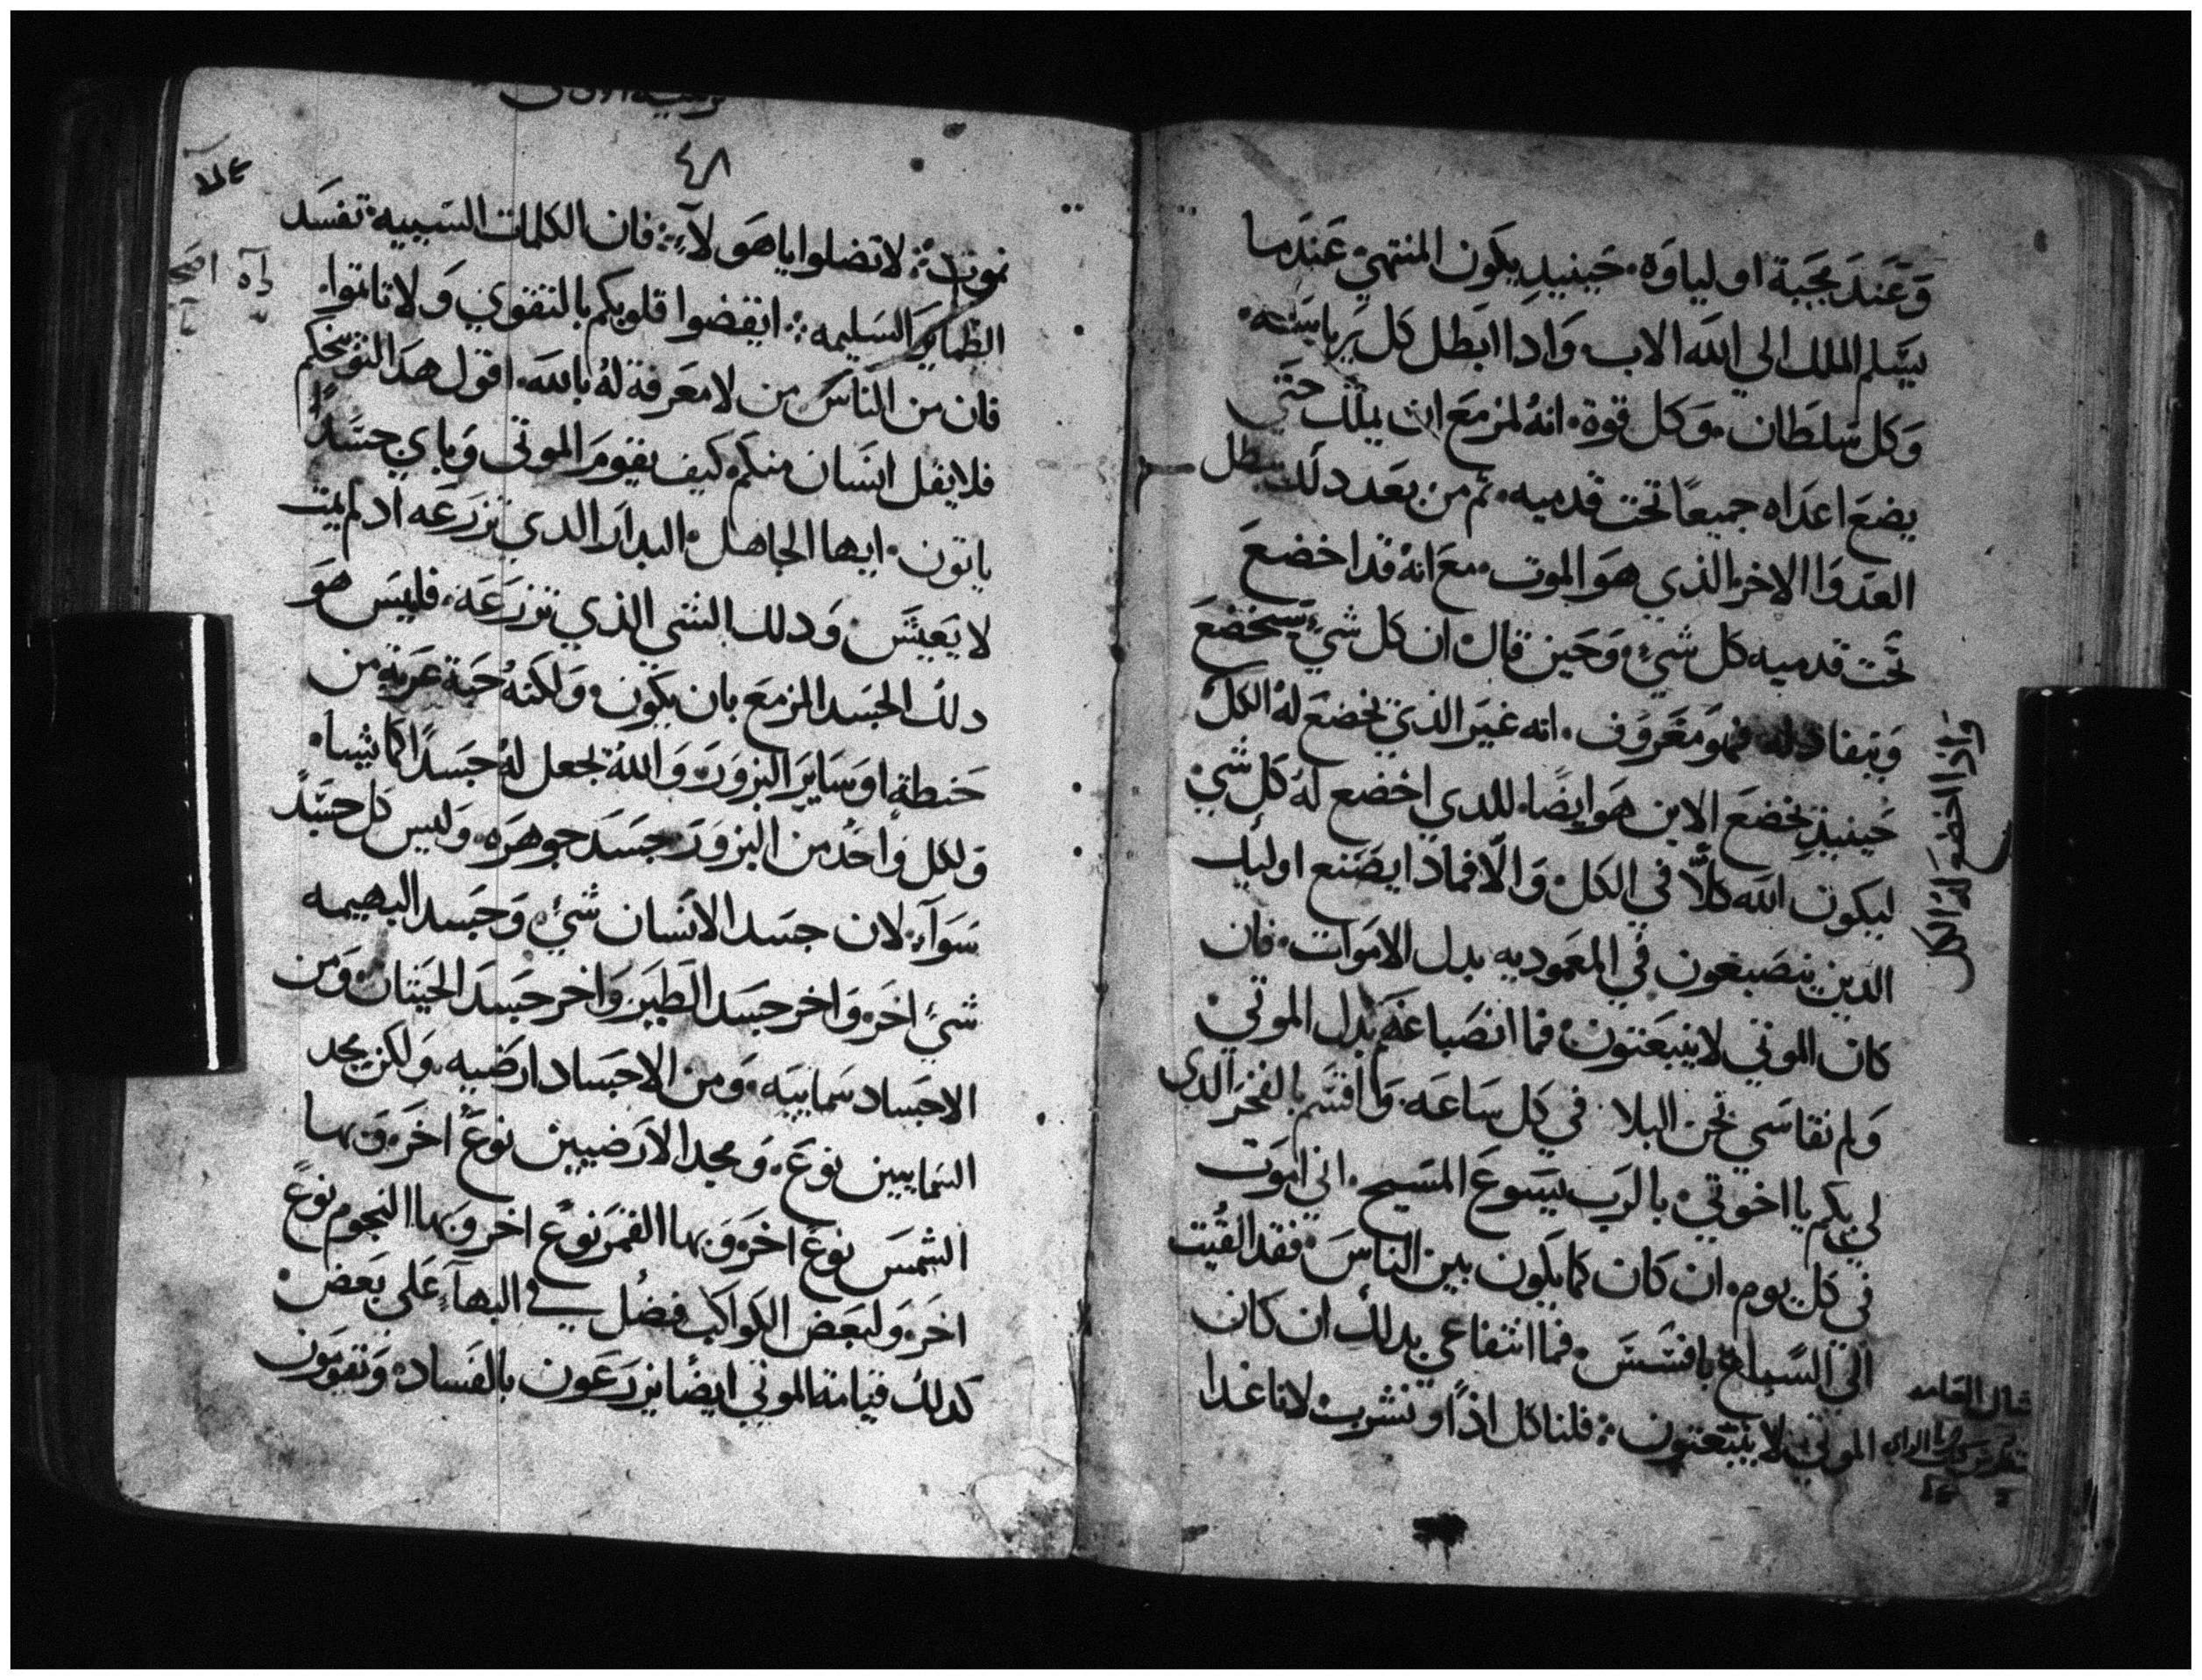 وَعَندَ مجَية اوليا وَه. حَينيدٍ يكون المنتهيٰ عَندَما
يسَلم الملك الي اللَه الاب. وَاداابَطل كل يَرياسَته.
وَكل سَلطان. وَكل قوة. انهُ لمزمَع ان يملك حتَي
يضعَ اعدَاه جميعًا تحت قدميه. ثم من بَعد دلك يبطل
العَدوَا الاخر الذي هوَ الموت. معَ انهُ قد اخضعَ
تحَت قدميه كل شيٍ. وَحَين قال ان كل شيٍ يستخضعَ
وَينقاد له فهوَ مَعَروَف. انه غيرَ الذيَ يخضعَ لهُ الكل
وَاذا اخضعَ لهُ الكل
حَينيذٍ يخضعَ الابن هوَ ايضًا. للدي اخضع لهُ كل شيٍ
ليكون اللَه كلًا في الكل. وَالا فماذا يصَنع اوليك
الدين ينصَبغون في المعَموديه بدل الامَوات. فان
كان الموتي لا ينبَعَتون. فما انصَباغهَ بدل الموتي
وَلم نقاسَي نحن البلا في كل سَاعَه. وَاقسَم بالفخرَ الدي
لي بكم يا اخوَتي. بالرَب يسَوعَ المسَيح. اني اموَت
في كل يوم. ان كان كما يكون بين الناسَ. فقد القيت
الي السَباع بافسَسَ. فما انتفاعي بدلك ان كان
الموتي لا ينبَعتون. فلناكل اذًا وَنشرب لانا غدا
٤٨
نموت. لا تضلوا يا هَولاءِ. فان الكلمات السَييه تفسَد
الظمايرَ السَليمه. ايقضوا قلوبكم بالتقوي وَلا تاتموا.
فان من النَاسَ من لا معَرفة لهُ باللَه. اقول هدَا لتوَبيخكم
فلا يقل انسَان منكم كيف يقومَ الموتي وَباي جسَدً
ياتون. ايها الجاهل. البدارَ الدي تزرَعَه اد لم يمت
لا يَعيشَ. وَدلك الشي الذي تزرَعَه. فليسَ هوَ
دلك الجسَد المزمعَ بان يكون. وَلكنهُ حَبة عَرية من
حَنطة اوَسَايرَ البزورَ. وَاللهُ يجعل لهُ جسَدًا كما يشا.
وَلكل وَاحدً من البزورَ جسَدَ جوهرَه. وَليس كل جسَدً
سَوَاءَ. لان جسَد الانسَان شيٍ. وَجسَد البهيمه
شيٍ اخرَ. وَاخر جسَد الطَيرَ. وَاخر جسَدَ الحَيتان. وَمن
الاجسَاد سَماييَه. وَمن الاجسَاد ارَضيه. وَلكن مجد
السَماييين نوعَ. وَمجد الارَضيين نوعَ اخرَ. وَبها
الشمسَ نوعَ اخرَ. وَبها القمرَ نوعَ اخر. وَبها النجوم نوعَ
اخرَ. وَلبَعَض الكواكب فضل في البهاءِ عَلي بَعَض
كدلك قيامة الموتي ايضًا يزرَعَون بالفسَاد. وَيقومَون